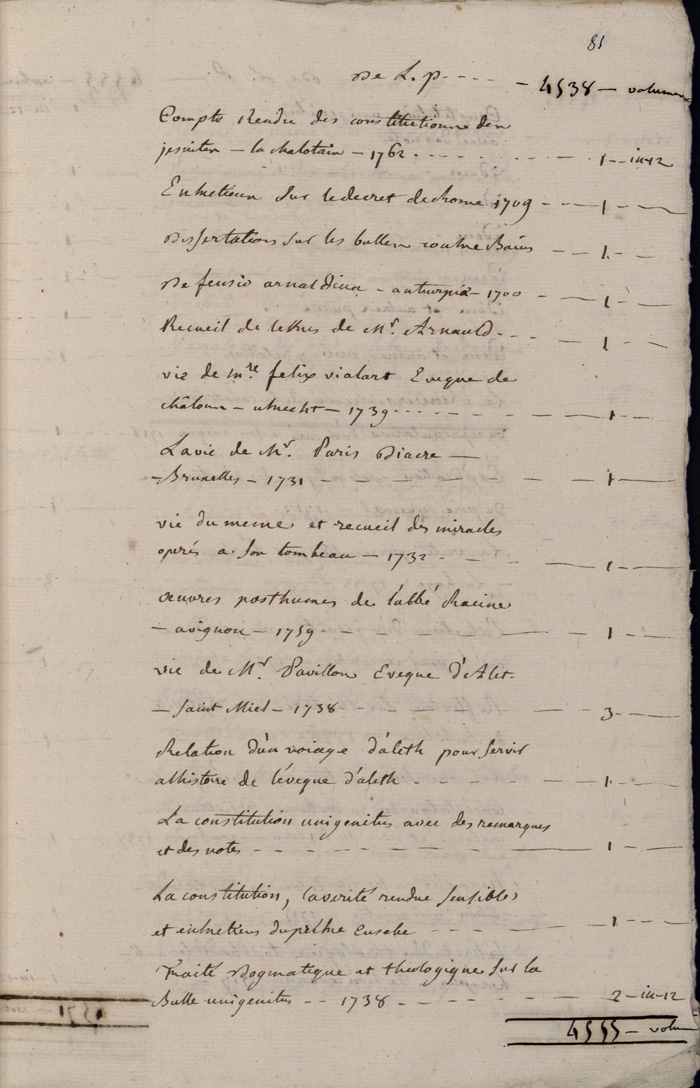 81
De L. p. - - - - - 4538 - volumes
Compte Rendu des constitutions des
jesuites - la chalotais - 1762 - - - - 1 - in-12
Entretiens sur le decret de Rome 1709 - - - 1 -
dissertations sur les bulles contre Baius - - 1 -
Defensio arnaldina - antuerpiæ - 1700 - - 1 -
Recueil de lettres de Mr. Arnauld - - - 1 -
vie de mre felix vialart Eveque de
châlons - utrecht - 1739 - - - - 1 -
La vie de Mr. Paris Diacre -
- Bruxelles - 1731 - - - - 1 -
vie du meme et recueil des miracles
oprés a son tombeau - 1732 - - - 1 -
œuvres posthumes de l'abbé Racine
- avignon - 1759 - - - - 1 -
vie de Mr. Pavillon Eveque d'Alet -
- Saint Miel - 1738 - - - - 3 -
Relation d'un voiage d'aleth pour servir
alhistoire de l'éveque d'aleth - - - 1 -
La constitution unigenitus avec des remarques
et des notes - - - - 1 -
La constitution, laverité rendue sensible
et entretiens du prêtre Eusebe - - - 1 -
Traité dogmatique et theologique sur la
Bulle unigenitus - - 1738 - - - 2 - in-12
4555 - volum